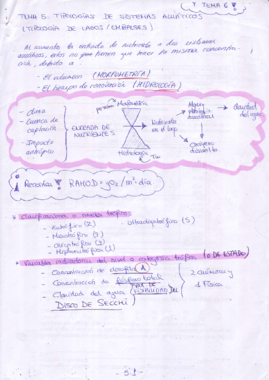 Y TEMA 6
TEMA 5: TIPOLOGÍAS DE SISTEMAS ACUÁTICOS
(TIPOLOGÍA DE LAGOS / EMBALSES)
Al aumentar la entrada de nutrientes a dos sistemas
acuáticos, estos no por tienen que tener la misma
debido a
- El volumen (MORFOMETRÍA)
- El tiempo de renovación (HIDROLOGÍA)
- Clima
- Cuenca de captación
- Impacto antrópico
ENTRADA DE NUTRIENTES
Morfometría
Hidrología
Nutrientes en el lago
Algas
claridad del agua
Oxígeno disuelto
Recordar! = gO2/m2·día
Clasificaciones o niveles tróficos:
- Eutrófico (2)
- Ultraoligotrófico (5)
- Mesotrófico (3)
- Oligotrófico (4)
- Hipereutrófico (1)
Variables indicadoras del nivel o categoría trófica (o DE ESTADO)
- Concentración de clorofila (A)
- Concentración de fósforo total
- Claridad del agua
DISCO DE SECCHI
2 Químicas y
1 Física
- 51 -